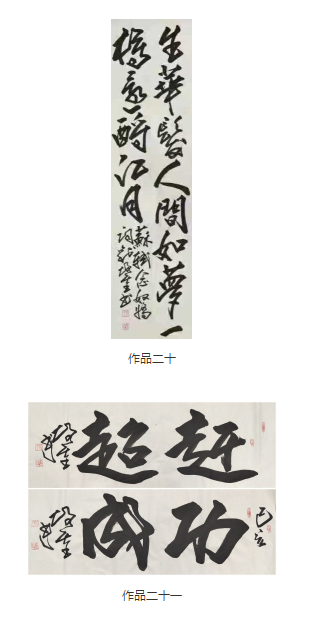 生華髮人間如夢一
樽還酹江月
蘇軾念奴嬌
作品二十
赶超
功成
作品二十一